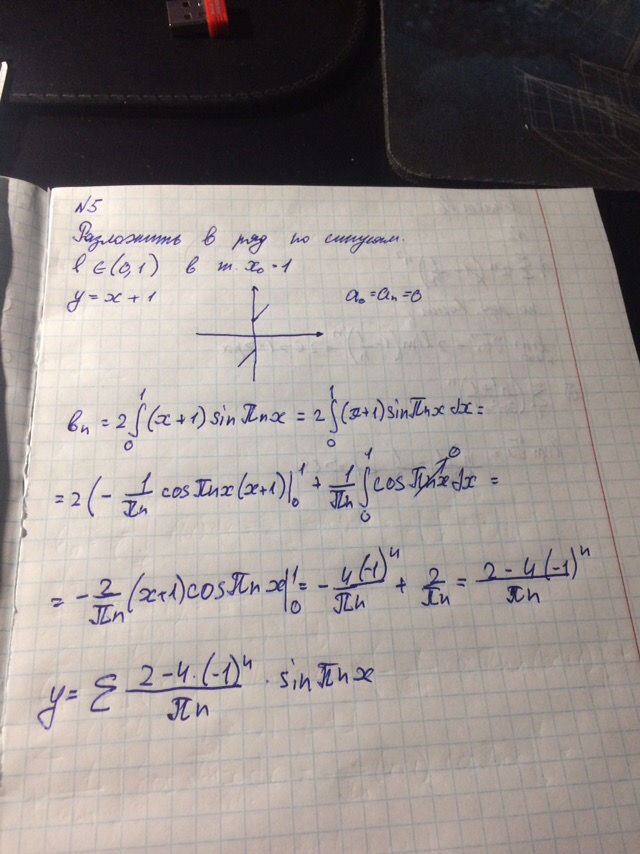 N5
Разложить в ряд по синусам.
b ∈ (0,1) в т. x₀ = 1
y = x + 1 a₀ = aₙ = 0
bₙ = 2∫₀¹(x+1) sin πnx = 2∫₀¹(x+1) sin πnx dx =
= 2(- 1/πn cos πnx (x+1)|₀¹ + 1/πn ∫₀¹ cos πnx dx = 0
= - 2/πn (x+1) cos πn x|₀¹ = - 4(-1)ⁿ/πn + 2/πn = 2-4(-1)ⁿ/πn
y = Σ 2-4·(-1)ⁿ/πn · sin πnx